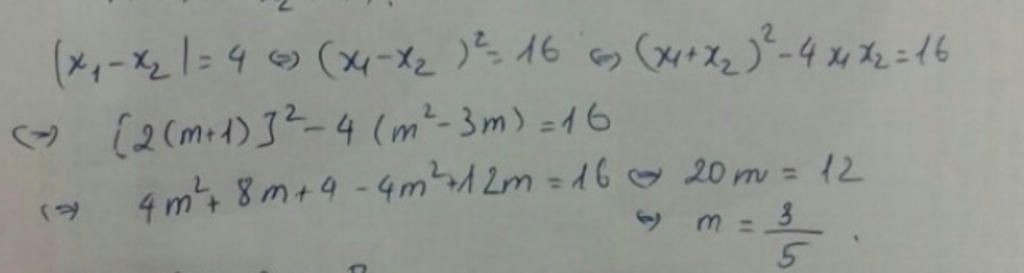 |x₁-x₂|=4 ⇔ (x₁-x₂)²=16 ⇔ (x₁+x₂)²-4x₁x₂=16
⇔ [2(m+1)]²-4(m²-3m)=16
⇔ 4m²+8m+4-4m²+12m=16 ⇔ 20m=12
⇔ m=3/5.